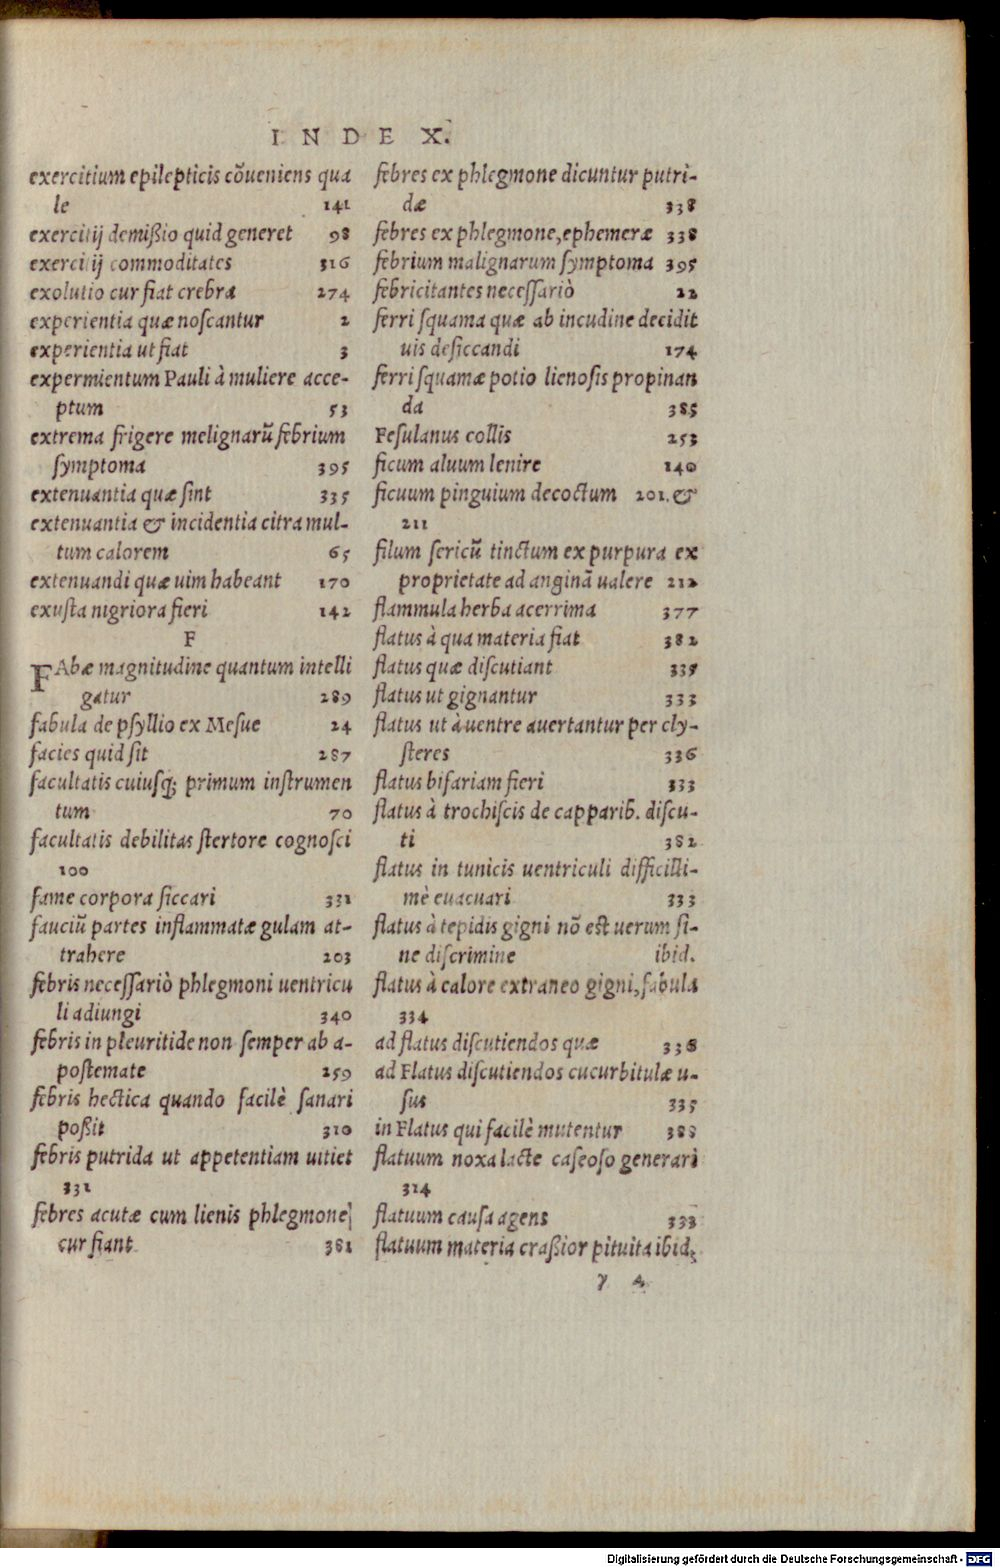 INDEX.
exercitium epilepticis cõueniens qua
le 141
exercitij demißio quid generet 98
exercitij commoditates 316
exolutio cur fiat crebra 274
experientia quæ noscantur 2
experientia ut fiat 3
expermientum Pauli à muliere acce-
ptum 53
extrema frigere melignarũ febrium
symptoma 395
extenuantia quæ sint 335
extenuantia & incidentia citra mul-
tum calorem 65
extenuandi quæ uim habeant 170
exusta nigriora fieri 142
F
FAbæ magnitudine quantum intelli
gatur 289
fabula de psyllio ex Mesue 24
facies quid sit 287
facultatis cuiusq; primum instrumen
tum 70
facultatis debilitas stertore cognosci
100
fame corpora siccari 331
fauciũ partes inflammatæ gulam at-
trahere 203
febris necessariò phlegmoni uentricu
li adiungi 340
febris in pleuritide non semper ab a-
postemate 259
febris hectica quando facilè sanari
poßit 310
febris putrida ut appetentiam uitiet
331
febres acutæ cum lienis phlegmone
cur fiant 381
febres ex phlegmone dicuntur putri-
dæ 338
febres ex phlegmone, ephemeræ 338
febrium malignarum symptoma 395
febricitantes necessariò 22
ferri squama quæ ab incudine decidit
uis desiccandi 174
ferri squamæ potio lienosis propinan
da 385
Fesulanus collis 253
ficum aluum lenire 140
ficuum pinguium decoctum 201. &
211
filum sericũ tinctum ex purpura ex
proprietate ad anginã ualere 212
flammula herba acerrima 377
flatus à qua materia fiat 382
flatus quæ discutiant 335
flatus ut gignantur 333
flatus ut à uentre auertantur per cly-
steres 336
flatus bifariam fieri 333
flatus à trochiscis de capparib. discu-
ti 382
flatus in tunicis uentriculi difficilli-
mè euacuari 333
flatus à tepidis gigni nõ est uerum si-
ne discrimine ibid.
flatus à calore extraneo gigni, fabula
334
ad flatus discutiendos quæ 336
ad Flatus discutiendos cucurbitulæ u-
sus 335
in Flatus qui facilè mutentur 388
flatuum noxa lacte caseoso generari
314
flatuum causa agens 333
flatuum materia craßior pituita ibid.
y 4
Digitalisierung gefördert durch die Deutsche Forschungsgemeinschaft - DFG